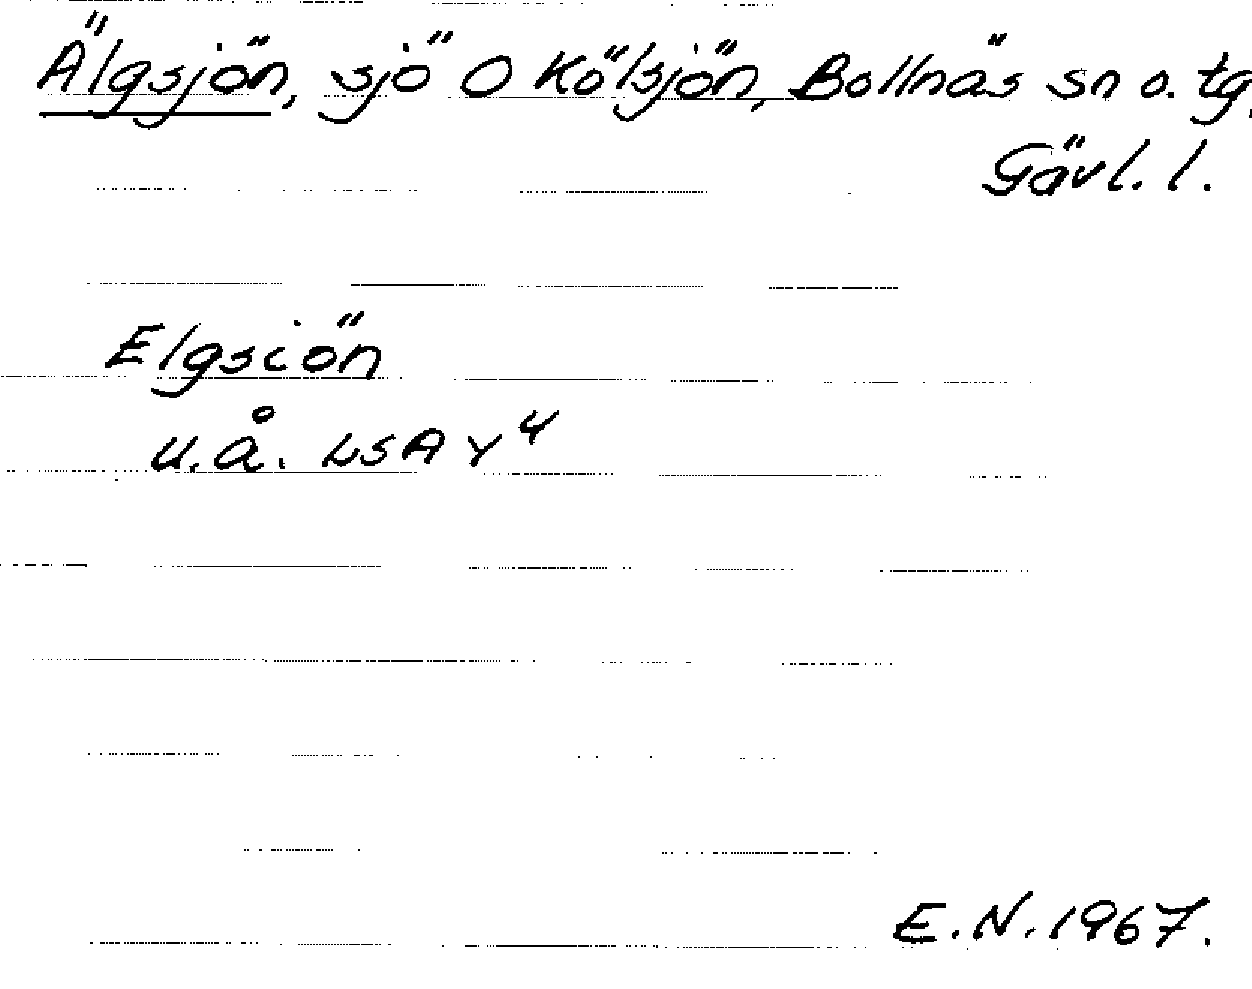 Älgsjön, sjö O Kölsjön, Bollnäs sn o. tg.
Gävl. l.
Elgsiön
u.å. LSA Y 4
E.N. 1967.